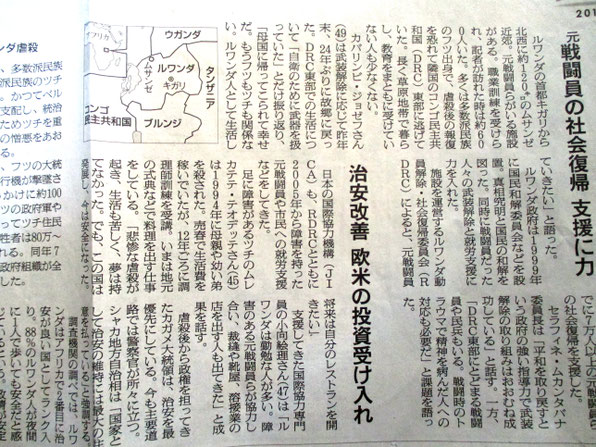 201
元戦闘員の社会復帰 支援に力
ルワンダの首都キガリから
北西に約120㌔のムサンゼ
近郊。元戦闘員らがいる施設
がある。職業訓練を受けら
れ、記者が訪れた時は約60
0人いた。多くは多数派民族
のフツ出身で、虐殺後の報復
を恐れて隣国のコンゴ民主共
和国（DRC）東部に逃げて
いた。長く草原地帯で暮ら
し、教育をまともに受けてい
ない人も少なくない。
カバリンビ・ジョセフさん
(49)は武装解除に応じて昨年
末、24年ぶりに故郷に戻っ
た。DRC東部での生活につ
いて「自衛のために武器を扱
っていた」とだけ振り返り、
「母国に帰ってこられて幸せ
だ。もうフツもツチも関係な
い。ルワンダ人として生活し
ていきたい」と語った。
ルワンダ政府は1999年
に国民和解委員会などを設
置。真相究明と国民の和解を
図った。同時に戦闘員だった
人々の武装解除と就労支援に
力を入れた。
施設を運営するルワンダ動
員解除・社会復帰委員会（R
DRC）によると、元戦闘員
でに7万人以上の元
の社会復帰を支援した。
セラフィネ・ムカンタバナ
委員長は「平和を取り戻すと
いう政府の強い指導力で武装
解除の取り組みはおおむね成
功している」と話す。一方、
「DRC東部にとどまる戦闘
員や民兵もいる。戦闘時のト
ラウマで精神を病んだ人への
対応も必要だ」と課題を語っ
治安改善 欧米の投資受け入れ
日本の国際協力機構（JI
CA）も、RDRCとともに
2005年から障害を持った
元戦闘員や市民への就労支援
などをしてきた。
足に障害があるツチのムレ
カテテ・テオデッテさん(45)
は1994年に母親や幼い弟
を殺された。売春で生活費を
稼いでいたが、12年ごろに調
理師訓練を受講。いまは地元
の式典などで料理を出す仕事
をしている。「悲惨な虐殺が
起き、生活も苦しく、夢は持
てなかった。でも、この国は
発展し、今は安全になった。
将来は自分のレストランを開
きたい」
支援してきた国際協力専門
員の小向絵理さん(47)は「ル
ワンダは勤勉な人が多い。障
害のある元戦闘員らが協力し
合い、裁縫や靴屋、溶接業の
店を出す人も出てきた」と成
果を話す。
虐殺後から政権を担ってき
たカガメ大統領は、治安を最
優先にしている。今も主要道
路では警察官が所々に立つ。
シャカ地方自治相は「国家と
して治安の維持には最大の注
意を払っている」と強調する。
調査機関の調べでは、ルワ
ンダはアフリカで2番目に治
安が良い国としてランク入
り。88%のルワンダ人が夜間
に1人で歩いても安全だと感
アフリカ
ウガンダ
ムサンゼ
ルワンダ
キガリ
タンザニア
コンゴ
民主共和国
ブルンジ
ンダ虐殺
、多数派民族
族のツチ
。かつてベル
支配し、統治
ためツチを重
の憎悪をあお
、フツの大統
行機が撃墜さ
っかけに約100
ツの政府軍や
ってツチ住民
牲者は80万〜
る。同年7
政府組織が全
た。